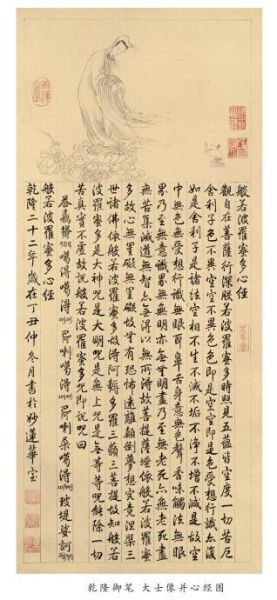 般若波羅蜜多心經
觀自在菩薩行深般若波羅蜜多時照見五蘊皆空度一切苦厄
舍利子色不異空空不異色色即是空空即是色受想行識亦復
如是舍利子是諸法空相不生不滅不垢不淨不增不減是故空
中無色無受想行識無眼耳鼻舌身意無色聲香味觸法無眼
界乃至無意識界無無明亦無無明盡乃至無老死亦無老死盡
無苦集滅道無智亦無得以無所得故菩提薩埵依般若波羅蜜
多故心無罣礙無罣礙故無有恐怖遠離顛倒夢想究竟涅槃三
世諸佛依般若波羅蜜多故得阿耨多羅三藐三菩提故知般若
波羅蜜多是大神咒是大明咒是無上咒是無等等咒能除一切
苦真實不虛故說般若波羅蜜多咒即說咒曰
噶得噶得 喇噶得 喇桑噶得 玻堤娑訶
般若波羅蜜多心經
乾隆二十二年歲在丁丑仲冬月書於妙蓮華室
乾隆御筆 大士像并心經圖